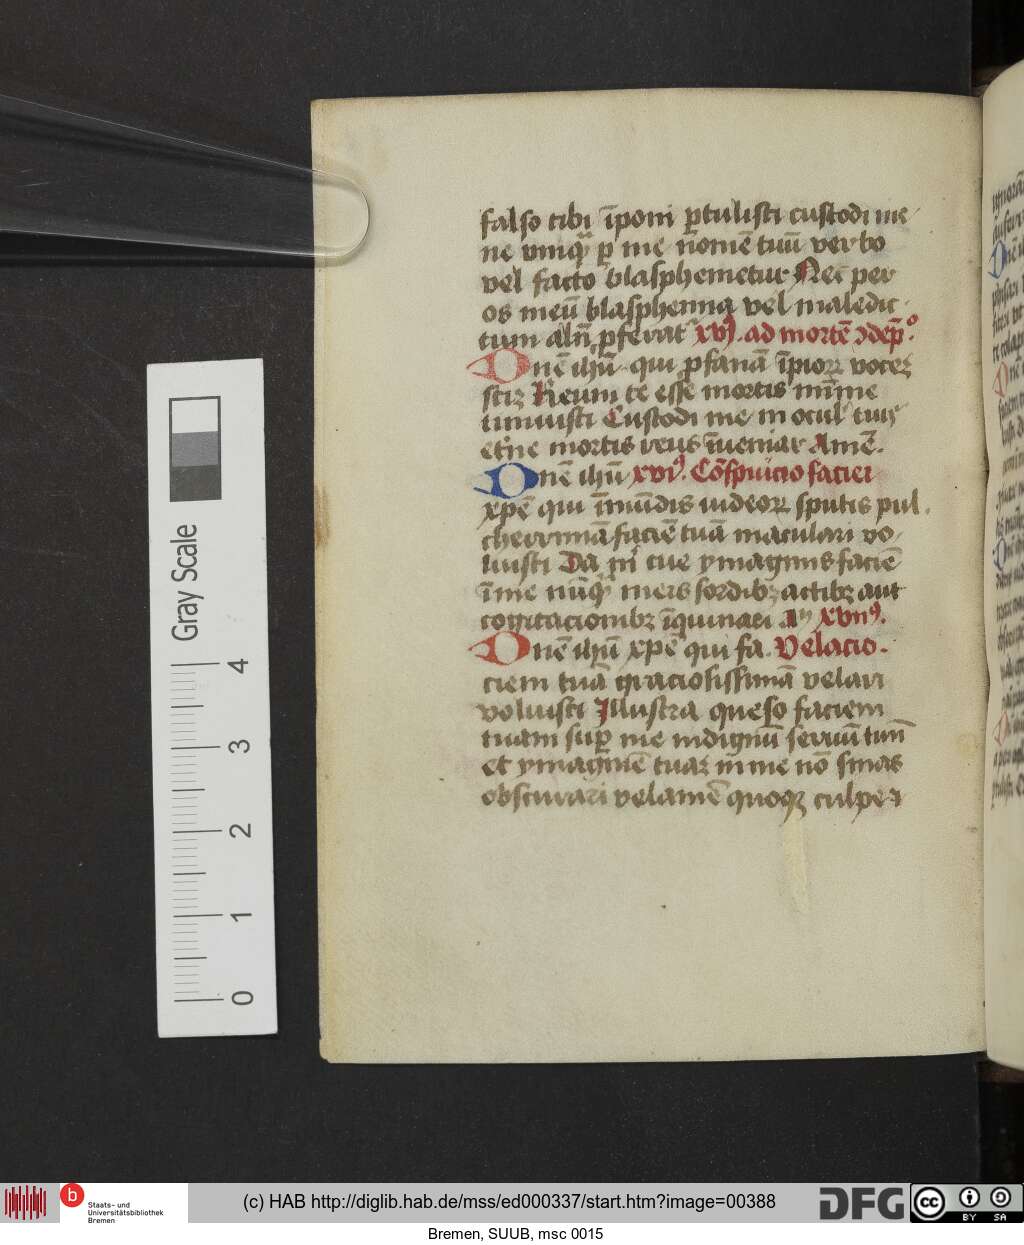 falso tibi īponi ꝑtulisti custodi me
ne vmqͣ ꝑ me nomē tuū verbo
vel facto blasphemetur Nec per
os meū blasphemia vel maledic
tum aliū ꝓferat xvꝰ. ad mortē ꝯdēpͦ.
Dnē ihū qui ꝓfanā īpioꝝ voces
stiꝫ Reum te esse mortis
timuisti Custodi me in ocul tuis
et ne mortis reus īueniar Amē.
Dnē ihū xviꝰ. Cōspuicio faciei
xpē qui īmūdis iudeoꝝ sputis pul
cherrimā faciē tuā maculari vo
luisti Da m tue ymaginis faciē
ī me nūqͣ meis sordibꝫ actibꝫ aut
cogitacionibꝫ īquinari A xviiꝰ.
Dnē ihū xpē qui fa. Velacio.
ciem tuā graciosissimā velari
voluisti Illustra queso faciem
tuam suꝑ me indignū seruū tuū
et ymaginē tuaꝫ in me nō sinas
obscurari velamē quoqꝫ culpe
Gray Scale
4
3
2
1
0
b Staats- und
Universitätsbibliothek
Bremen
(c) HAB http://diglib.hab.de/mss/ed000337/start.htm?image=00388
DFG
cc BY SA
Bremen, SUUB, msc 0015